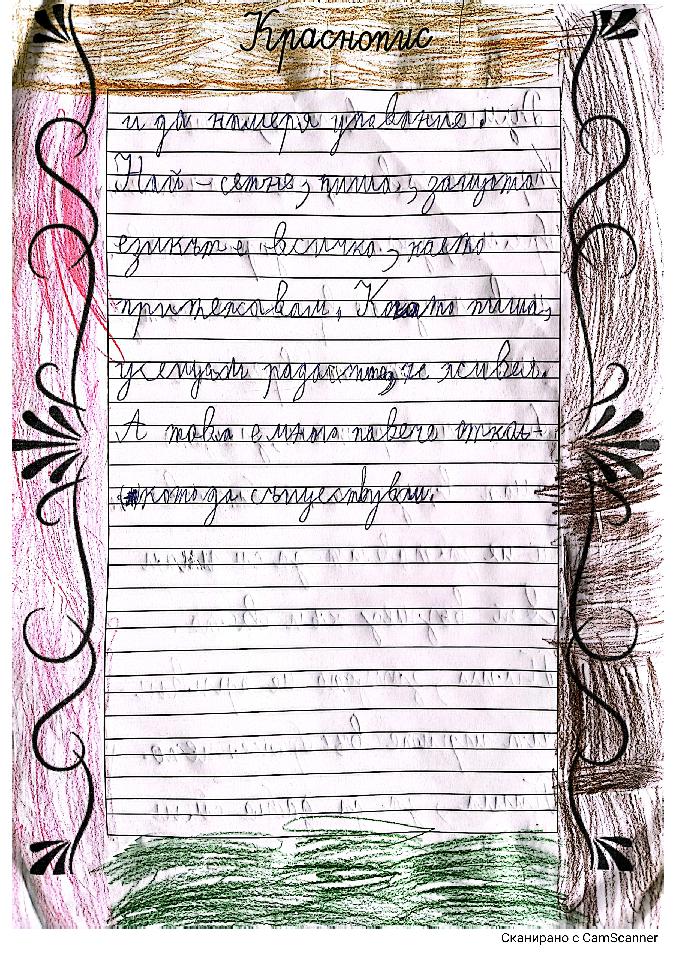 Краснопис
и да намеря упование.
Най-сетне, пиша, защото
езикът е всичко, което
притежавам. Когато пиша,
усещам радостта, че живея.
А това е много повече откол-
кото да съществувам.
Сканирано с CamScanner